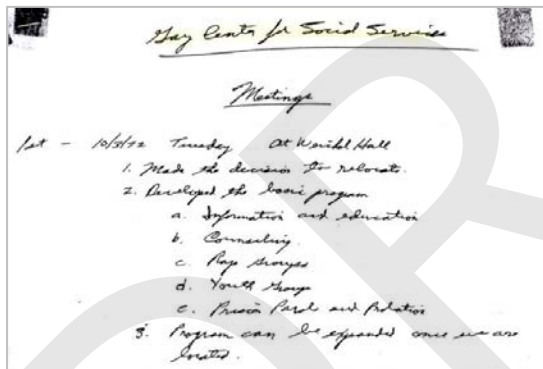 Gay Center for Social Services
Meetings
1st - 10/3/72 Tuesday At Werskel Hall
1. Made the decision to relocate.
2. Developed the basic program
a. Information and education
b. Counseling.
c. Rap Groups
d. Youth Group
e. Prison Parole and Probation
3. Program can be expanded once we are
located.